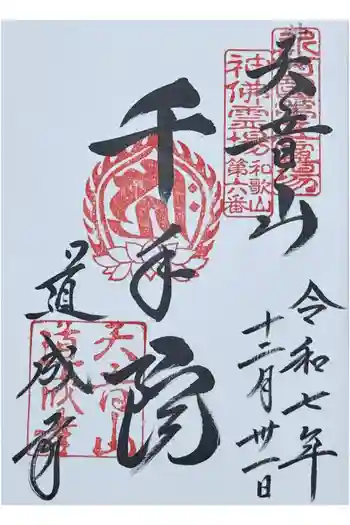 天音山
千手院
道成寺
令和七年
十二月卅一日
神佛霊場
和歌山
第六番
天音山
道成寺